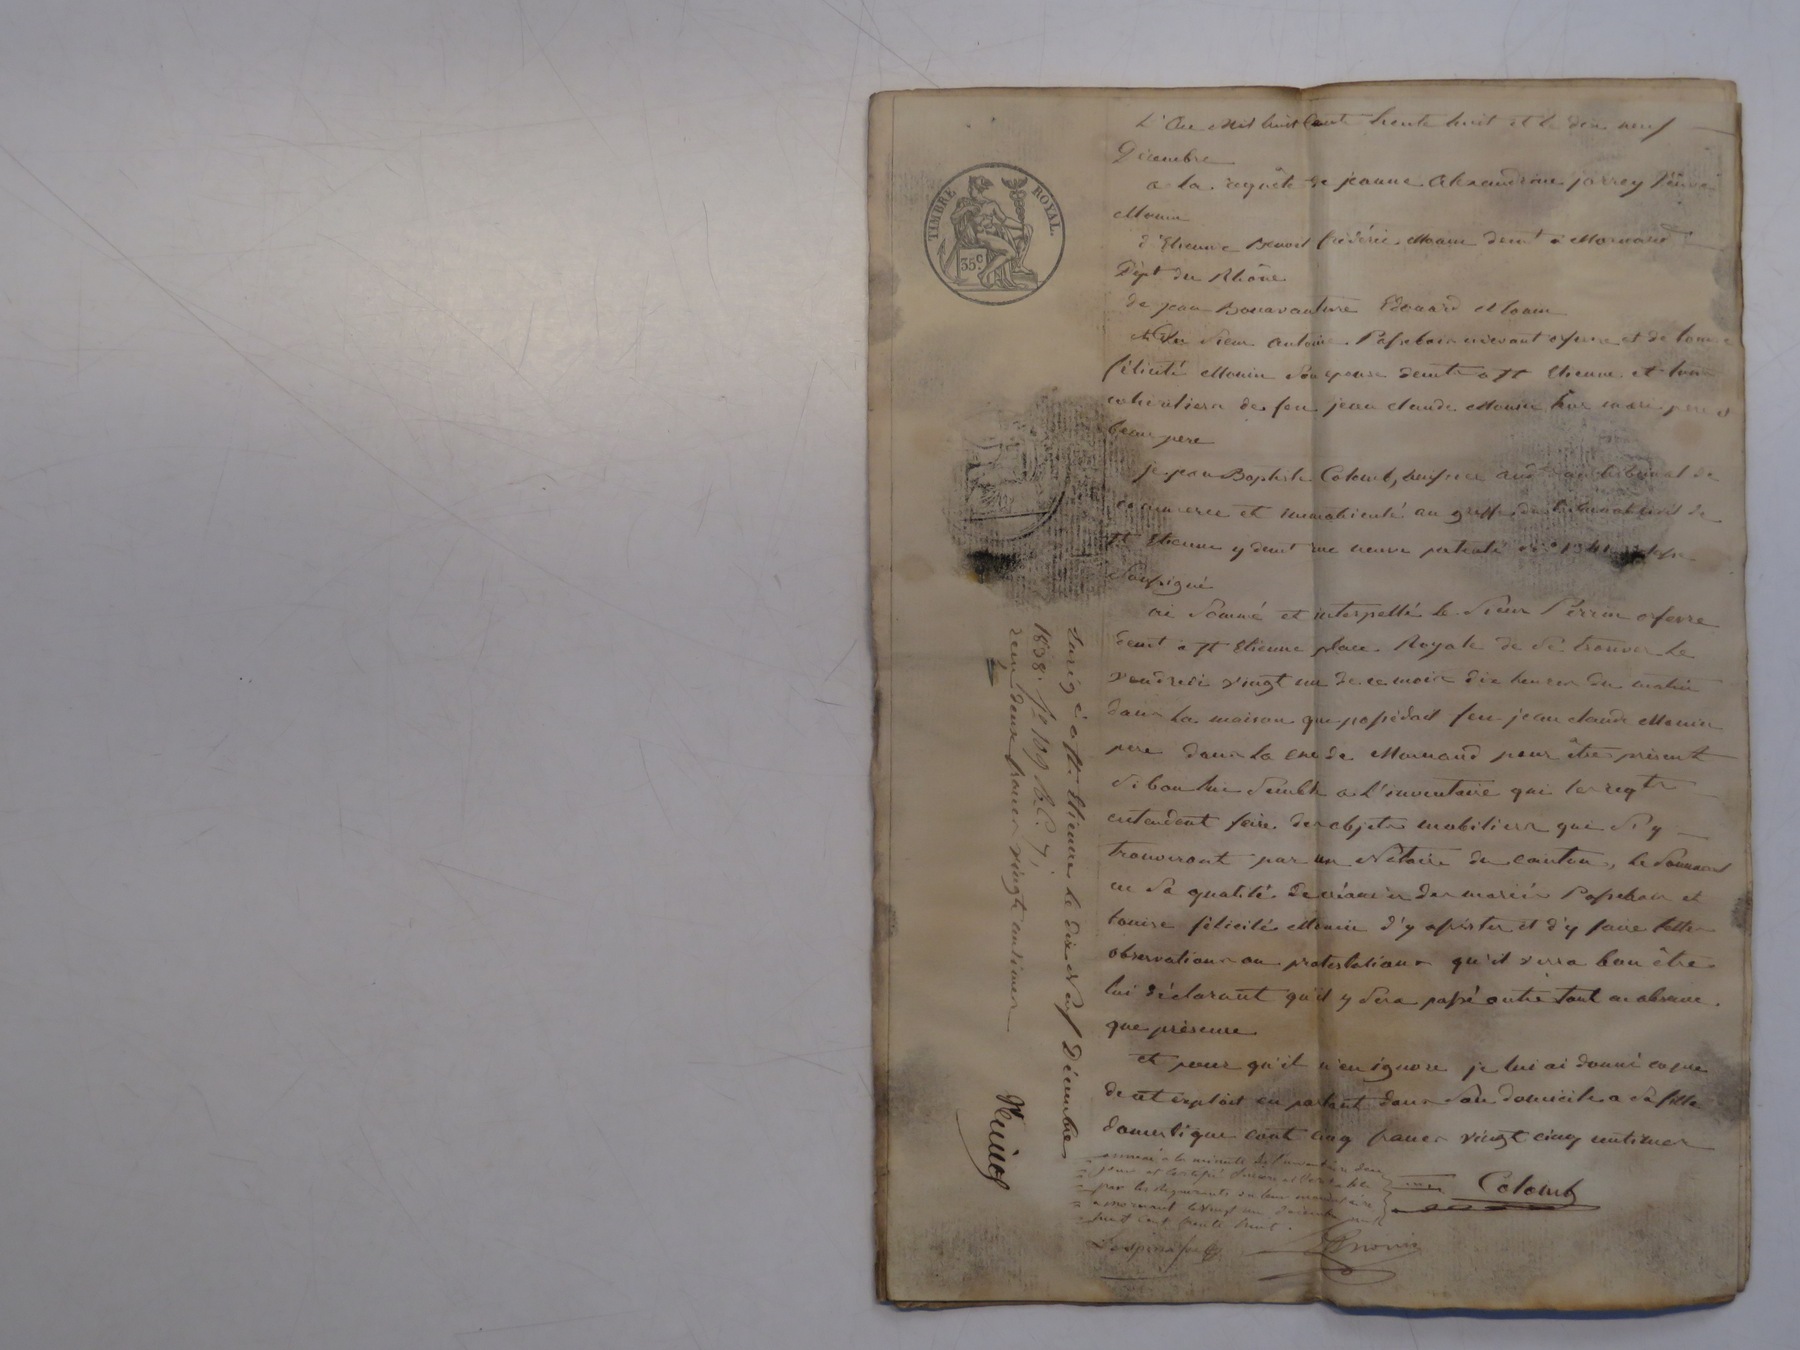 TIMBRE ROYAL.
35 c.
L'an mil huit cent trente huit et le dix neuf
Décembre
a la requête de jeanne Alexandrine jarrey veuve
Monin
d'Etienne Benoit frédéric Monin demt a Mornand
Dépt du Rhône
de jean Bonavanture Edouard Monin
et du sieur antoine orfevre et de louise
félicité Monin son epouse demts a St Etienne et tous
cohéritiers de feu jean claude Monin leur mari pere et
beau pere
je jean Baptiste Colomb, huissier audr au tribunal de
commerce et immatriculé au greffe du tribunal civil de
St Etienne y demt rue neuve patenté
Soussigné
ai sommé et interpellé le sieur Perrin orfevre
demt a St Etienne place Royale de se trouver le
vendredi vingt un de ce mois dix heures du matin
dans la maison que possédait feu jean claude Monin
pere dans la cne de Mornand pour être présent
si bon lui semble a l'inventaire que les reqts
entendent faire des objets mobiliers qui s'y
trouveront par un Notaire du canton, le sommant
en sa qualité de créancier des mariés et
louise félicité Monin d'y assister et d'y faire telles
observations ou protestations qu'il verra bon être
lui déclarant qu'il y sera passé outre tant en absence
que présence
et pour qu'il n'en ignore je lui ai donné copie
de cet exploit en parlant dans son domicile a sa fille
domestique cout cinq francs vingt cinq centimes
Colomb
annexé a la minute de l'inventaire de ce
jour et certifié sincère et véritable
par les Requerants ou leur mandataire
a Mornant le vingt un Décembre mil
huit cent trente huit.
Monin
Enrig é a St. Etienne le dix Neuf Décembre
1838. fo 109 Rc. 7.
reçu deux francs vingt centimes